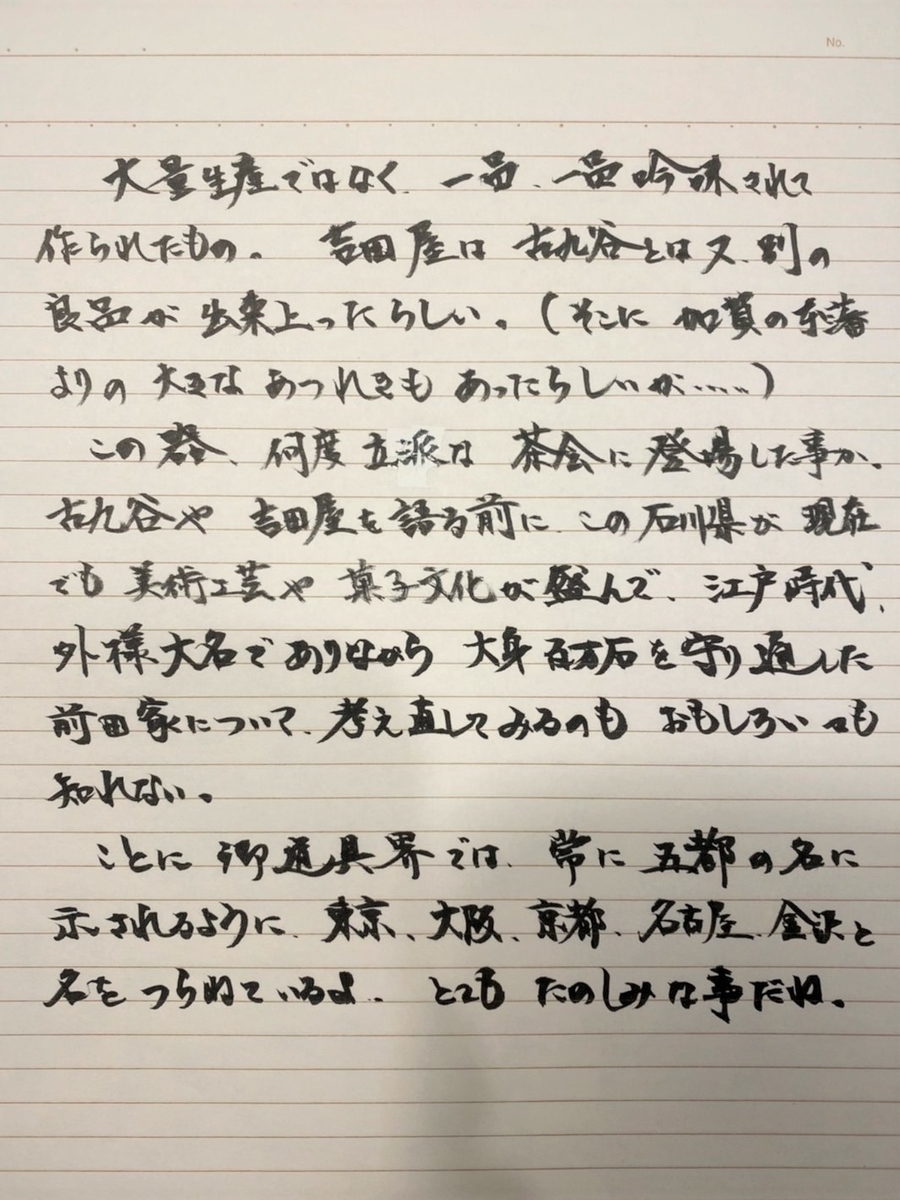 No.
大量生産ではなく、一品、一品吟味されて
作られたもの。吉田屋は古九谷とは又、別の
良品が出来上ったらしい。(そこに加賀の本藩
よりの大きなあつれきもあったらしいが……)
この器、何度立派な茶会に登場した事か。
古九谷や吉田屋を語る前に、この石川県が現在
でも美術工芸や菓子文化が盛んで、江戸時代、
外様大名でありながら大身百万石を守り通した
前田家について、考え直してみるのもおもしろいかも
知れない。
ことに御道具界では、常に五都の名に
示されるように、東京、大阪、京都、名古屋、金沢と
名をつらねているよ。とてもたのしみな事だね。